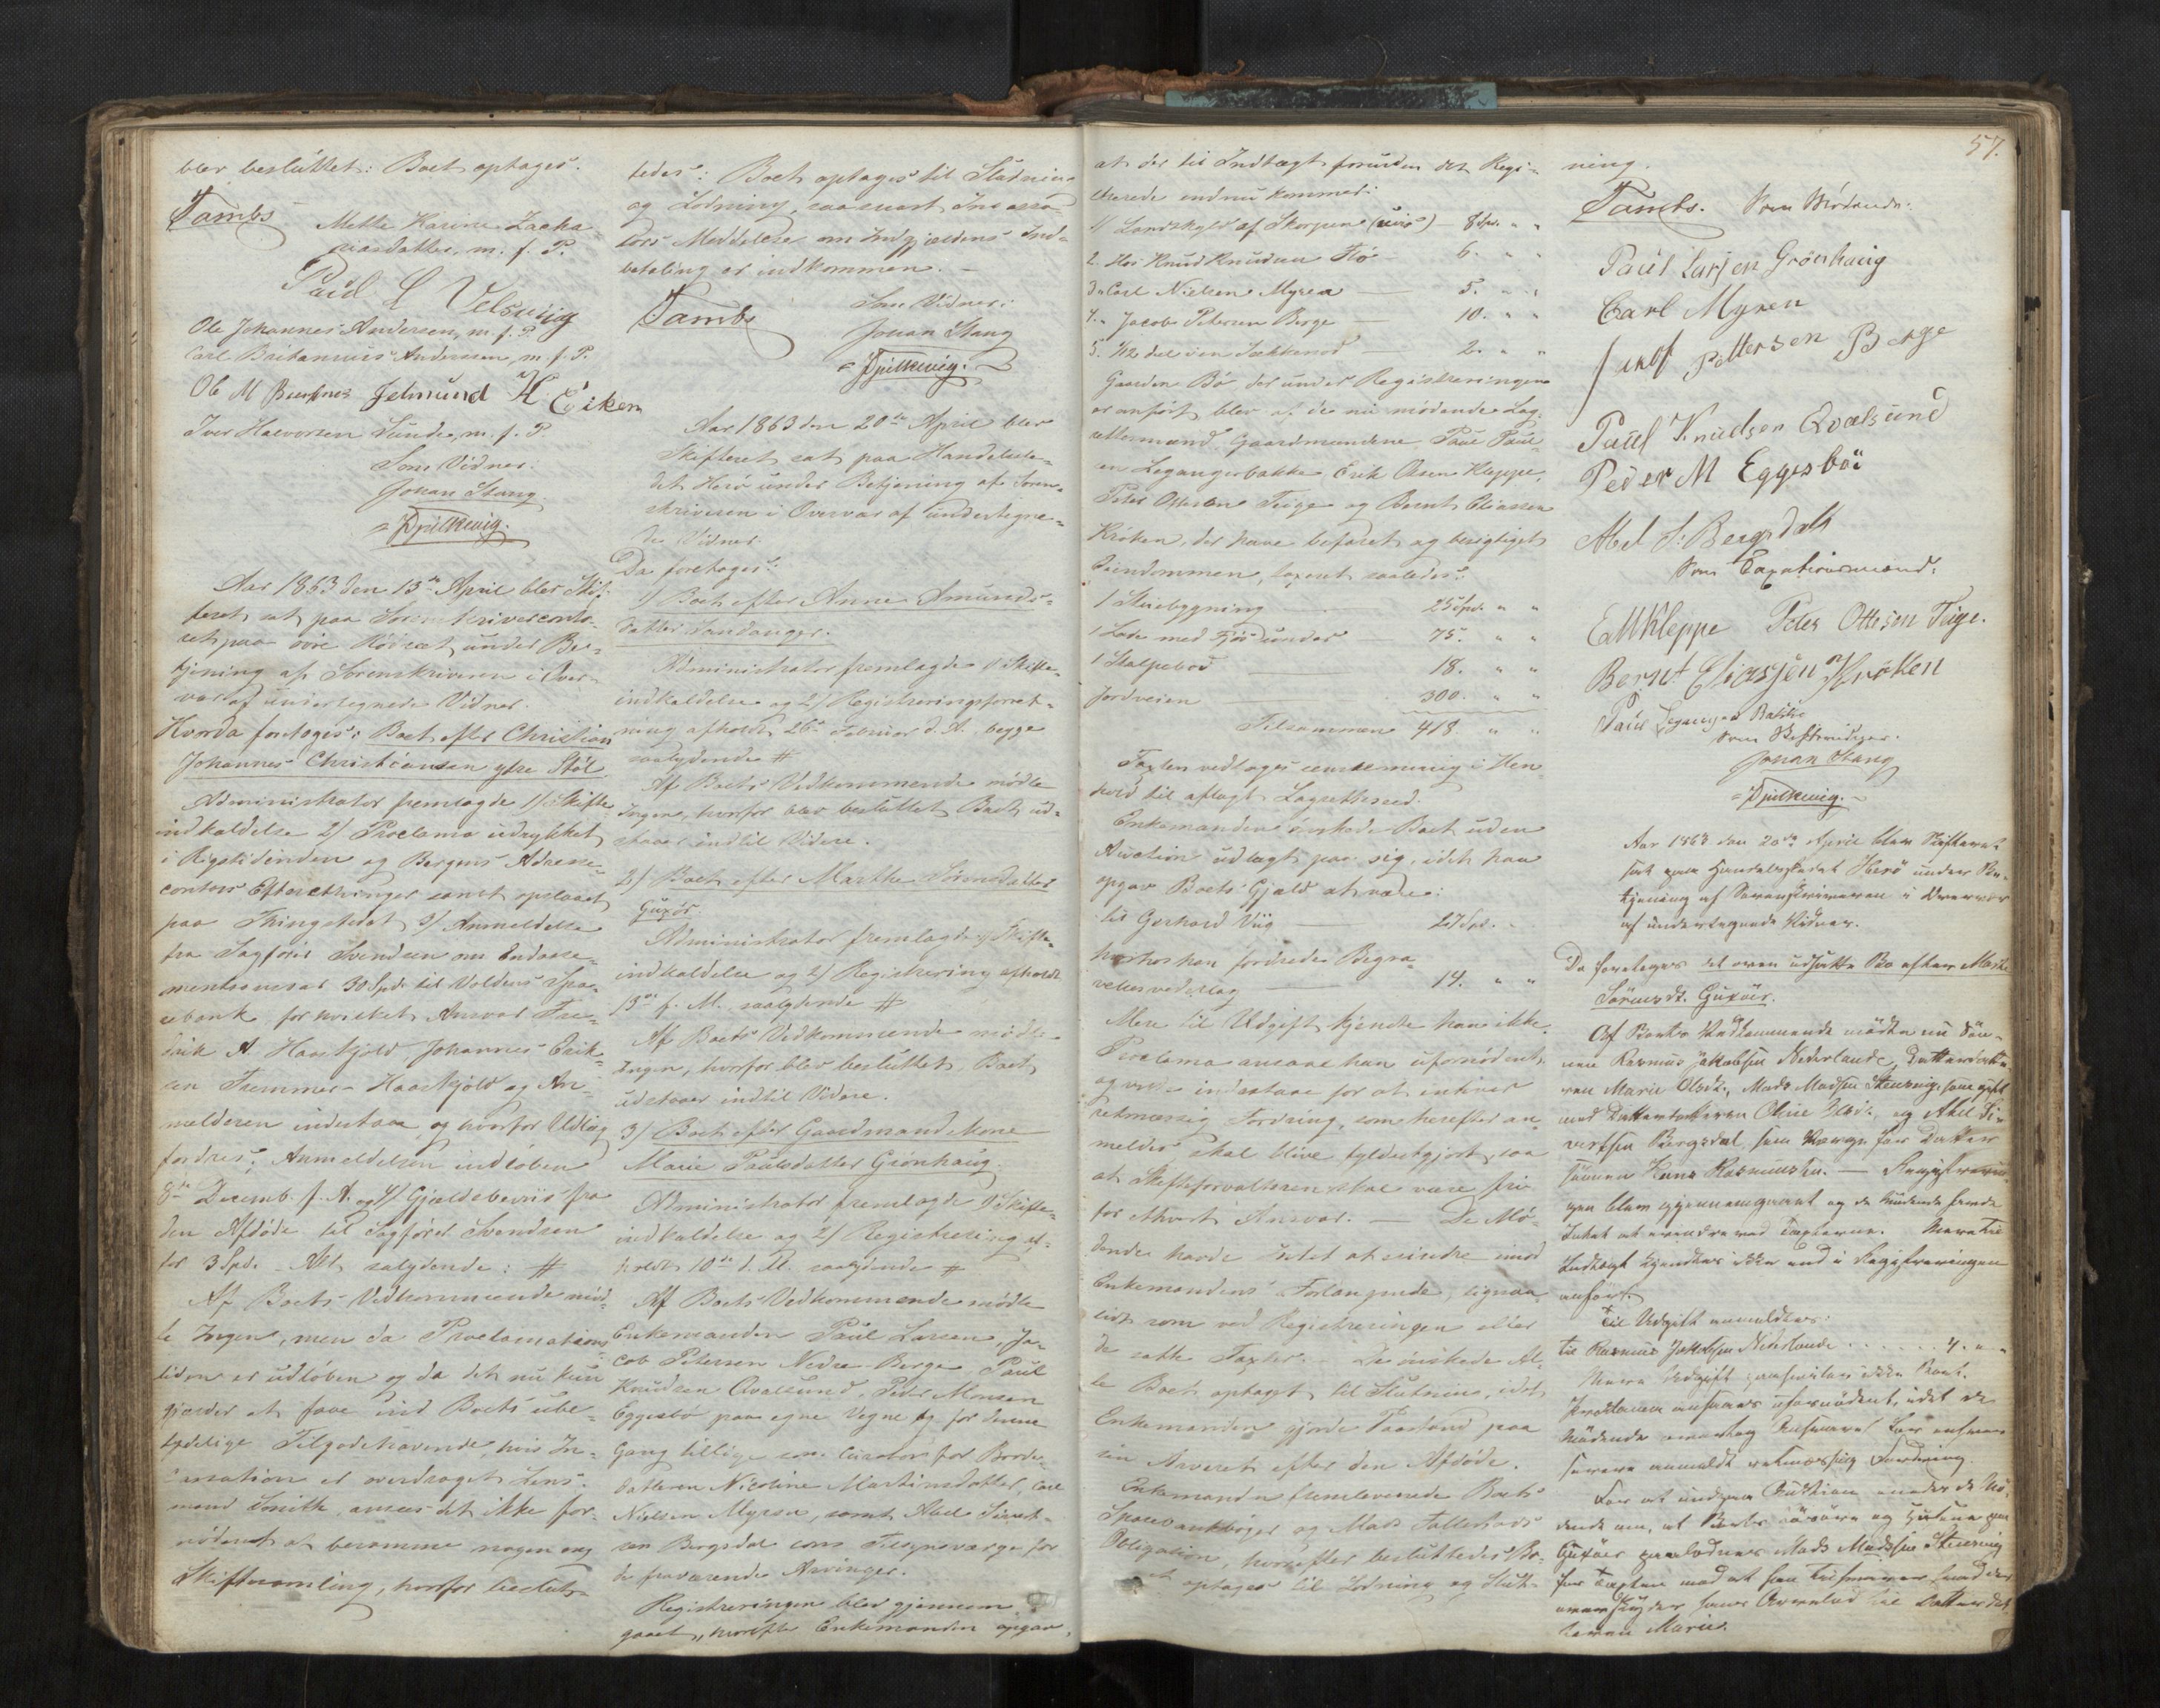 blev besluttet: Boet optages.
Tambs
Mette Karine Zacha
riasdatter, m. f. P.
Paul L Velsvig
Ole Johannes Andersen, m. f. P.
Carl Britanius Andersen, m. f. P.
Ole M Jetmund H. Eiken
Iver Halvorsen Sunde, m. f. P.
Som Vidner.
Johan Stang
Djupkevig.
Aar 1863 den 13de April blev Skif-
teret sat paa Sorenskriverconto-
ret paa øvre Rødsæt under Be-
tjening af Sorenskriveren i Over-
vær af undertegnede Vidner.
Hvorda foretoges: Boet efter Christian
Johannes Christiansen ytre Støl
Administrator fremlagde 1/ Skifte
indkaldelse 2/ Proclama udrykket
i Rigstidenden og Bergens Adresse-
contors Efterretninger samt opslaaet
paa Thingstedet 3/ Anmeldelse
fra Sagfører Svendsen om Endosse-
mentsansvar 30 Spd. til Voldens Spa-
rebank for hvilket Ansvar Fre-
drik A. Haaskjold Johannes Erik-
sen Tremmer- Haaskjold og An-
melderen indestaar og hvorfor Udlæg
fordres; Anmeldelsen indløben
8de Decemb. f. A. og 4/ Gjældsbeviis fra
den Afdøde til Sagfører Svendsen
for 3 Spd. Alt salydende: #
Af Boets Vedkommende mød-
te Ingen, men da Proclamations
tiden er udløben og da det nu kun
gjælder at faae ind Boets ube-
tydelige Tilgodehavende, hvis In-
cassation er overdraget Lens-
mand Smith, ansees det ikke for-
nødent at beramme nogen ny
Skiftesamling, hvorfor beslut-
tedes: Boet optages til Slutning
og Lodning, saasnart Incassa-
tors Meddelelse om Indgjældens Ind-
betaling er indkommen. –
Tambs
Som Vidner:
Johan Stang
Djupkevig.
Aar 1863 den 20de April blev
Skifteret sat paa Handelsste-
det Herø under Betjening af Soren-
skriveren i Overvær af undertegne-
de Vidner.
Da foretoges:
1/ Boet efter Anne Amunds-
datter Sandanger.
Administrator fremlagde 1/ Skifte-
indkaldelse og 2/ Registreringsforret-
ning afholdt 26de Februar d. A. begge
saalydende #
Af Boets Vedkommende mødte
Ingen, hvorfor blev besluttet Boet ud-
staaer indtil Videre.
2/ Boet efter Marthe Sørensdatter
Guxør.
Administrator fremlagde 1/ Skifte-
indkaldelse og 2/ Registrering afholdt
13de f. M. saalydende #
Af Boets Vedkommende mødte
Ingen, hvorfor blev besluttet, Boet
udstaaer indtil Videre.
3/ Boet efter Gaardmandskone
Marie Paulsdatter Grønhaug.
Administrator fremlagde 1/ Skifte-
indkaldelse og 2/ Registrering af-
holdt 10de d. M. saalydende #
Af Boets Vedkommende mødte
Enkemanden Paul Larsen, Ja-
cob Petersen Nedre-Berge Paul
Knudsen Qvalsund, Peder Monsen
Eggesbø paa egne Vegne og for denne
Gang tillige som Curator for Broder-
datteren Nicoline Martinsdatter, Carl
Nielsen Myren, samt Abel Sivert-
sen Bergsdal som Tilsynsværge for
de fraværende Arvinger.
Registreringen blev gjennem-
gaaet, hvorefter Enkemanden opgav,
57.
at der til Indtægt foruden det Regi-
strerede endnu kommer:
1/ Landskyld af Skorpen 8 Spd. " "
2. Hos Knud Knudsen Flø 6. " "
3" Carl Nielsen Myren — 5. " "
4. " Jacob Petersen Berge — 10. " "
5. 1/12 del i en — 2. " "
Gaarden Bø der under Registreringen
er anført blev af de nu mødende Lag-
rettesmænd Gaardmændene Paul Paul-
sen Leganger bakke Erik Kleppe,
Peter Ottesen Teige og Bernt Eliassen
Krøken, der have befaret og besigtiget
Eiendommen, taxert saaledes:
1 Stuebygning — 25 Spd. " "
1 Lade med Fjøs under — 75. " "
1 Stolpebod — 18. " "
Jordveien — 300. " "
Tilsammen 418. " "
Taxten vedtoges eenstemmig i Hen-
hold til aflagt Lagretteseed.
Enkemanden ønskede Boet uden
Auction udlagt paa sig, idet han
opgav Boets Gjæld at være:
til Gerhard Viig — 27 Spd. "
hvorhos han fordrede Begra-
velsesvederlag — 14. " "
Mere til Udgift kjendte han ikke.
Proclama ansaae han ufornødent
og vilde indestaae for at enhver
retmæssig Fordring, som herefter an-
meldes skal blive fyldestgjort, saa
at Skifteforvalteren skal være fri
for ethvert Ansvar. — De Mø-
dende havde Intet at erindre imod
Enkemandens Forlangende, ligesaa
lidt som ved Registreringen eller
de satte Taxter. — De ønskede Al-
le Boet optaget til Slutning, idet
Enkemanden gjorde Paastand paa
sin Arveret efter den Afdøde.
Enkemanden fremleverede Boets
Sparebankbøger og Mads
Obligation, hvorefter besluttedes: Bo-
et optages til Lodning og Slut-
ning.
Tambs. Som Mødende:
Paul Larsen Grönhaug
Carl Myren
Jakob Pettersen Berge
Paul Knudsen Qvalsund
Peder M Eggesböe
Abel S. Bergsdal
Som Taxationsmænd:
E M Kleppe Peter Ottesen Teige.
Bernt Eliasjen Kröken
Paul Leganger Bakke
Johan Stang
Djupkevig. –
Aar 1863 den 20de April blev Skifteret
sat paa Handelsstedet Herø under Be-
tjening af Sorenskriveren i Overvær
af undertegnede Vidner.
Da foretoges det oven udsatte Bo efter Marthe
Sørensdt. Guxøer.
Af Boets Vedkommende mødte nu Søn-
nen Rasmus Jakobsen Nederlande, Datterdatte-
ren Marie Olsdt., Mads Madsen Stensvig, som gift
med Datterdatteren Oline Olsdt., og Abel Si-
vertsen Bergsdal, som Værge for Datter
sønnen Hans Rasmussen. — Registrerin-
gen blev gjennemgaaet og de Mødende havde
Intet at erindre ved Taxterne. Mere til
Indtægt kjendtes ikke end i Registreringen
anført.
Til Udgift anmeldtes:
til Rasmus Jakobsen Nederlande . . . . . . 4. " "
Mere Udgift paahviler ikke Boet.
Proclama ansaaes ufornødent, idet de
Mødende overtog Ansvaret for enhver
senere anmeldt retmæssig Fordring.
For at undgaa Auktion enedes de Mø-
dende om, at Boets Løsøre og Husene paa
Guxøer paalodnes Mads Madsen Stensvig
for Taxten mod at han tilsvarer hvad der
overskyder hans Arvelod til Datterdat-
teren Marie.